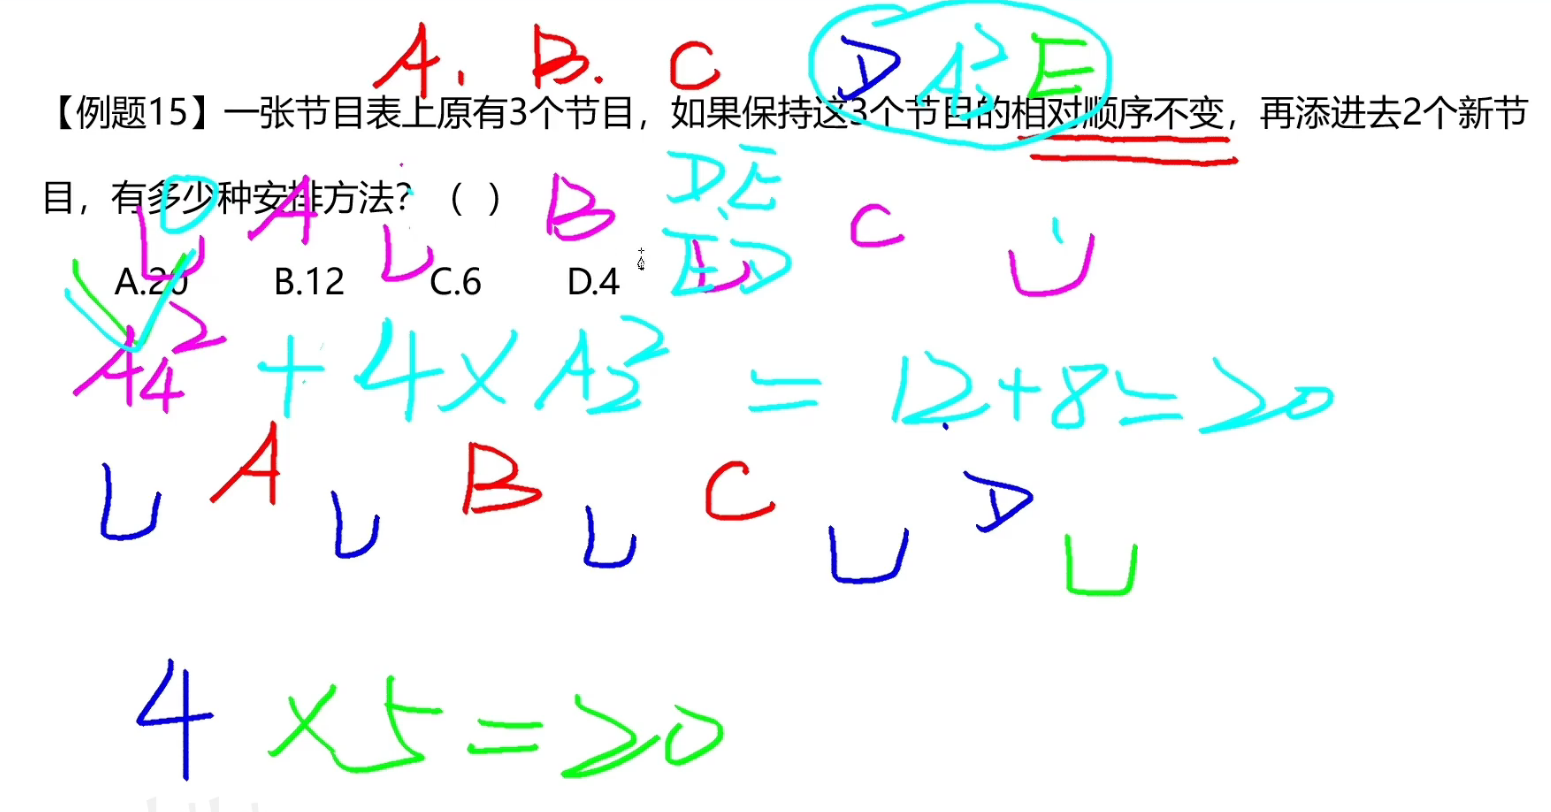 A. B. C D A₂² E
【例题15】一张节目表上原有3个节目，如果保持这3个节目的相对顺序不变，再添进去2个新节
D E
目，有多少种安排方法？（ ）
D A B C
E D
A.20 B.12 C.6 D.4
A₄² + 4 × A₂² = 12 + 8 = 20
A B C D
4 × 5 = 20